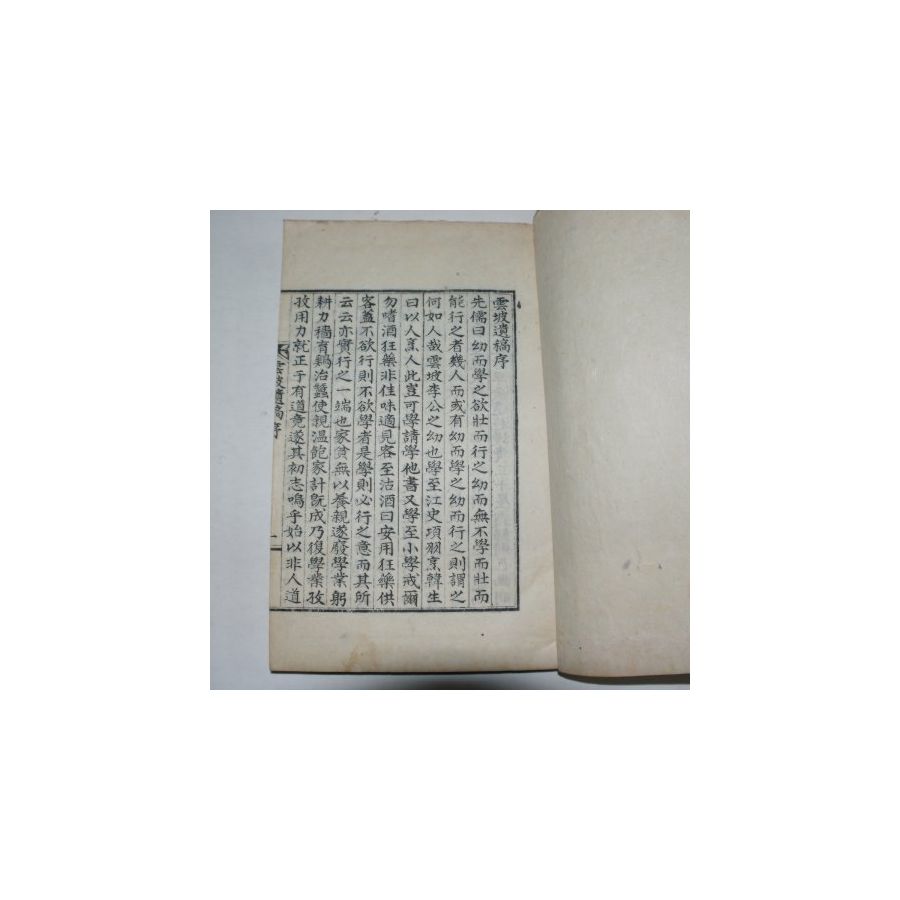 雲坡遺稿序
先儒曰幼而學之欲壯而行之幼而無不學而壯而
能行之者幾人而或有幼而學之幼而行之則謂之
何如人哉雲坡李公之幼也學至江史項羽烹韓生
曰以人烹人此豈可學請學他書又學至小學戒爾
勿嗜酒狂藥非佳味適見客至沽酒曰安用狂藥供
客蓋不欲行則不欲學者是學則必行之意而其所
云云亦實行之一端也家貧無以養親遂廢學業躬
耕力穡育鷄治蠶使親溫飽家計既成乃復學業孜
孜用力就正于有道竟遂其初志嗚乎始以非人道
雲坡遺稿序
一